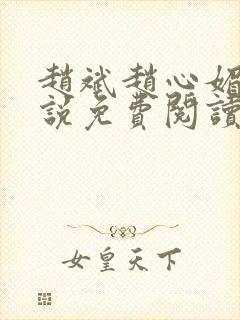 趙斌趙心媚
說免費閱讀
女皇天下